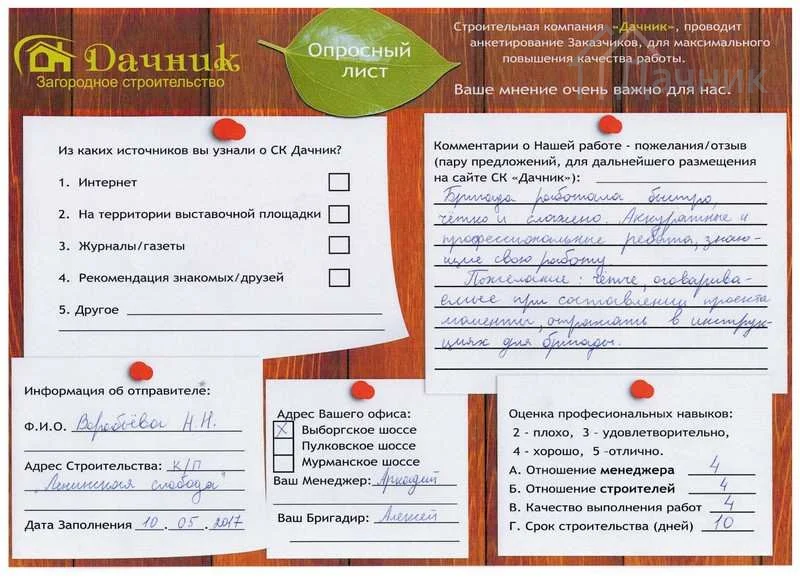 Дачник
Загородное строительство
Опросный
лист
Строительная компания «Дачник», проводит
анкетирование Заказчиков, для максимального
повышения качества работы.
Ваше мнение очень важно для нас.
Дачник
Из каких источников вы узнали о СК Дачник?
1. Интернет
2. На территории выставочной площадки
3. Журналы/газеты
4. Рекомендация знакомых/друзей
5. Другое
Комментарии о Нашей работе - пожелания/отзыв
(пару предложений, для дальнейшего размещения
на сайте СК «Дачник»):
Бригада работала быстро,
чётко и слажено. Аккуратные и
профессиональные ребята, знаю-
щие свою работу.
Пожелание: чётче, оговарива-
емые при составлении проекта
моменты, отражать в инструк-
циях для бригады.
Информация об отправителе:
Ф.И.О. Воробьёва Н.Н.
Адрес Строительства: К/П
"Ленинская слобода"
Дата Заполнения 10 . 05 . 2017
Адрес Вашего офиса:
X Выборгское шоссе
Пулковское шоссе
Мурманское шоссе
Ваш Менеджер: Аркадий
Ваш Бригадир: Алексей
Оценка професиональных навыков:
2 - плохо, 3 - удовлетворительно,
4 - хорошо, 5 -отлично.
А. Отношение менеджера 4
Б. Отношение строителей 4
В. Качество выполнения работ 4
Г. Срок строительства (дней) 10